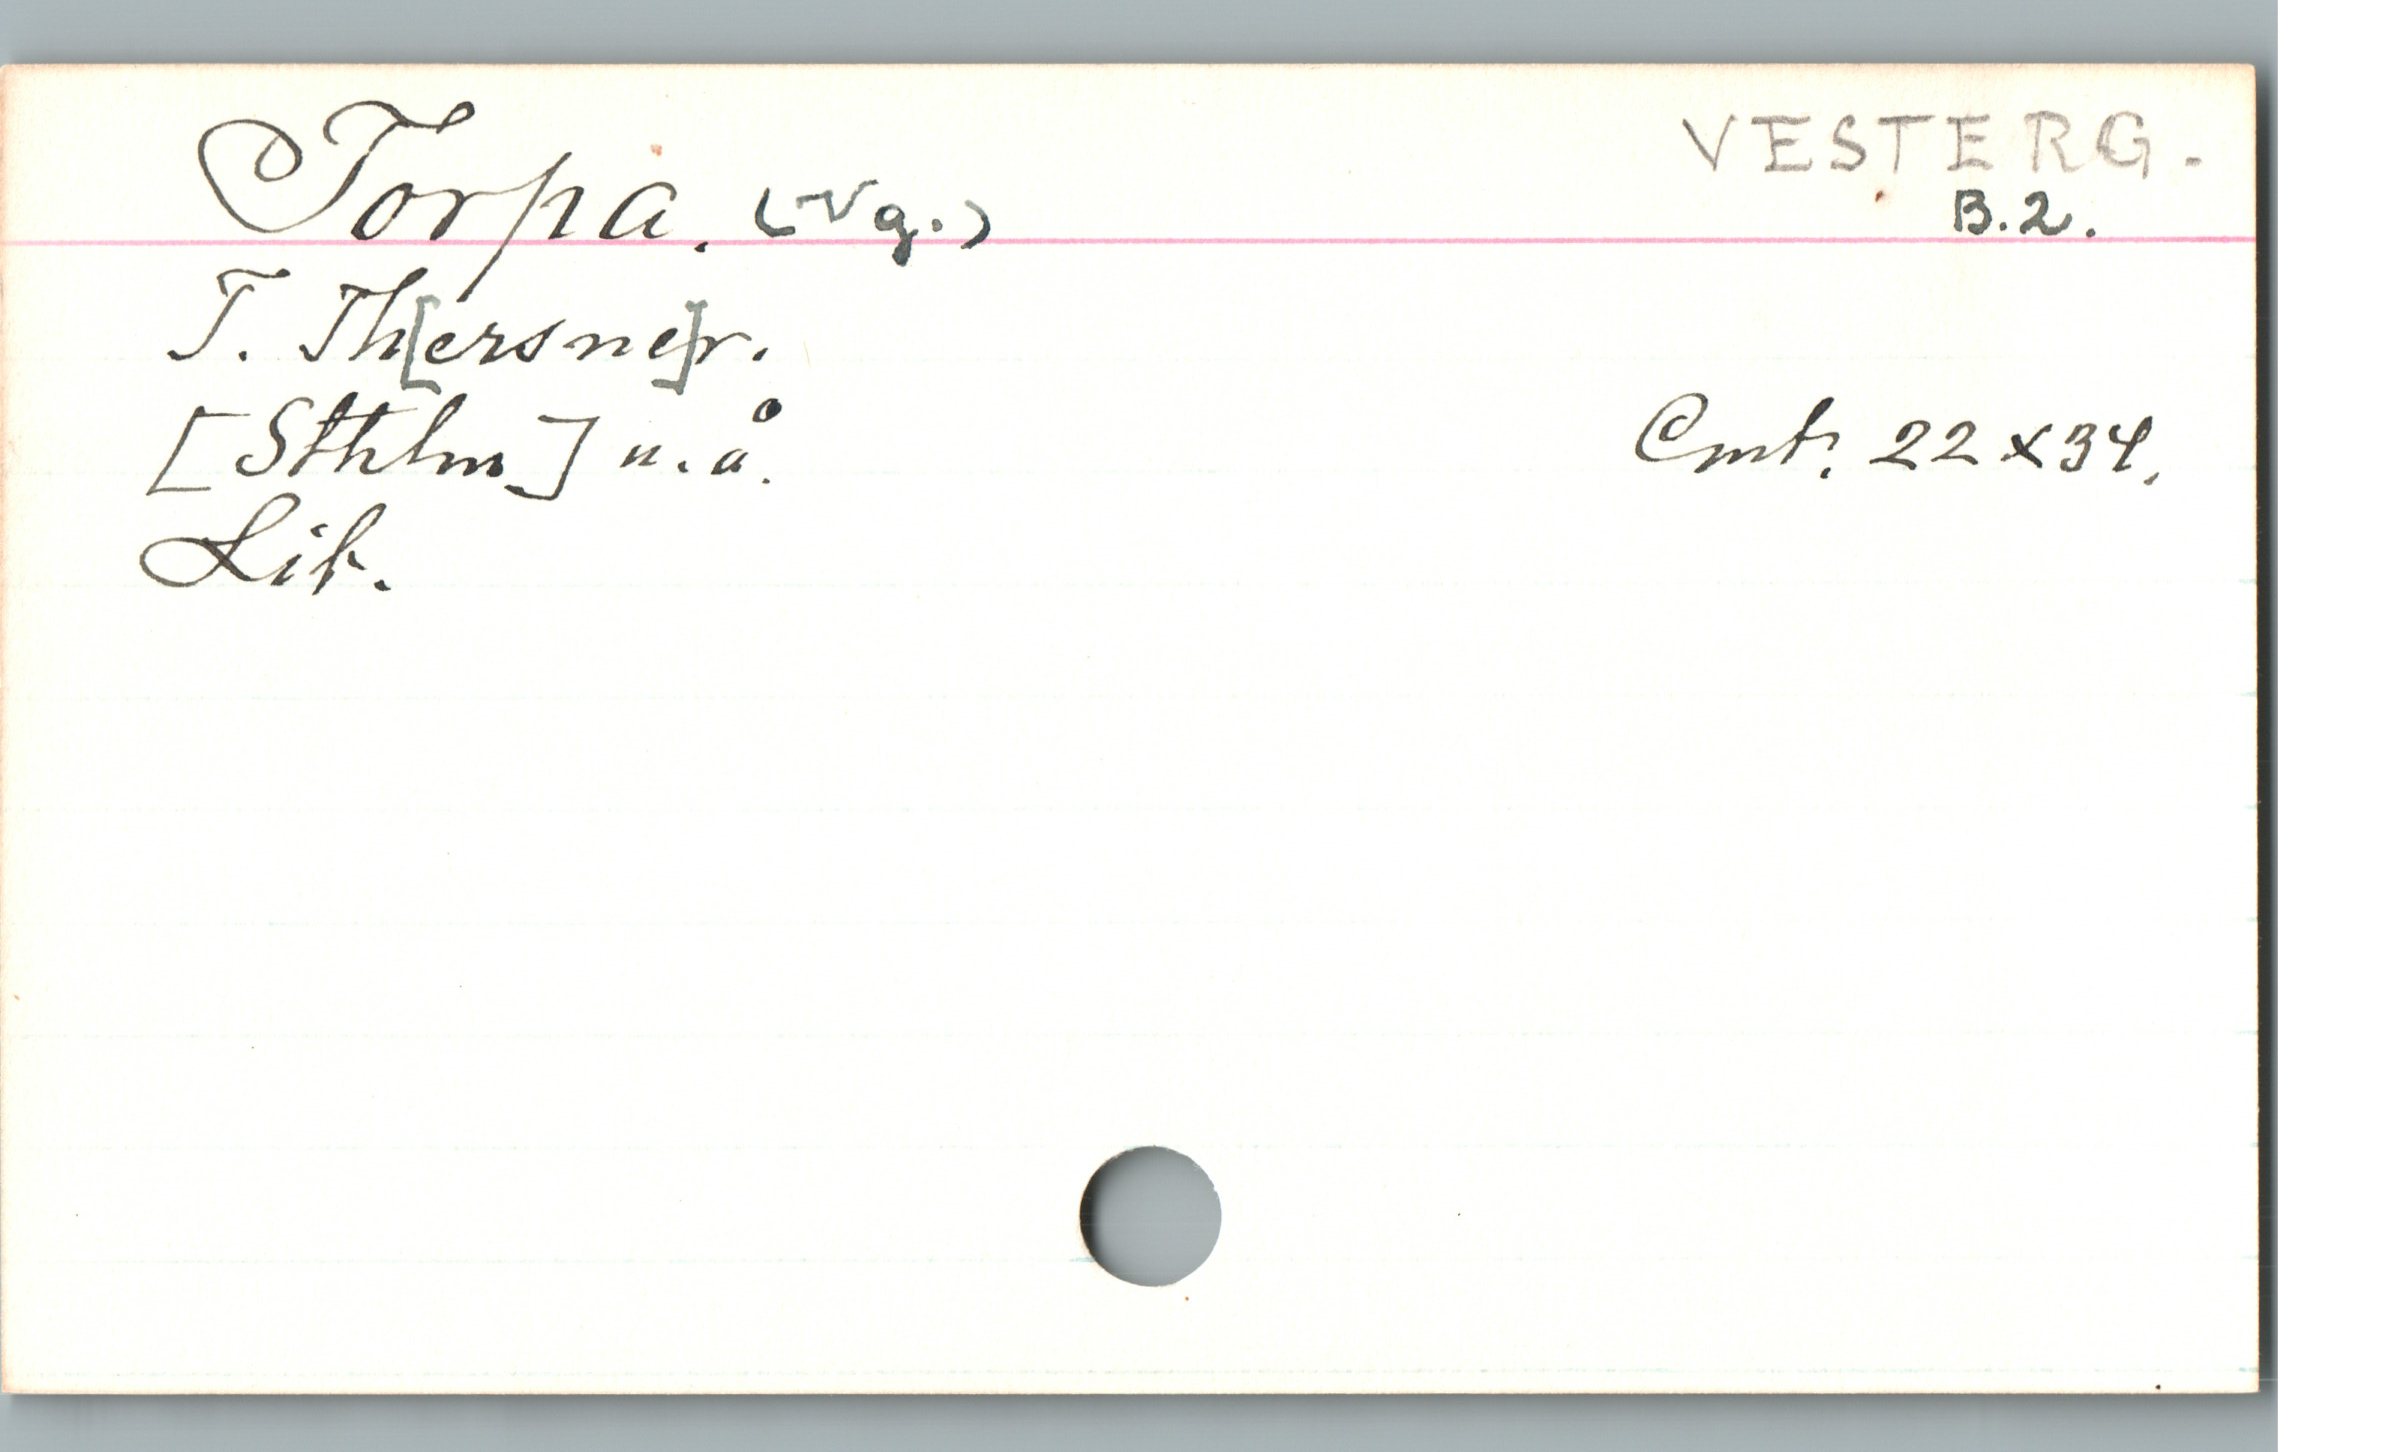 Torpa. (Vg.)
VESTERG.
B.2.
T. Th[ersne]r.
[Sthlm] u.å.
Cmt. 22 x 34.
Lit.